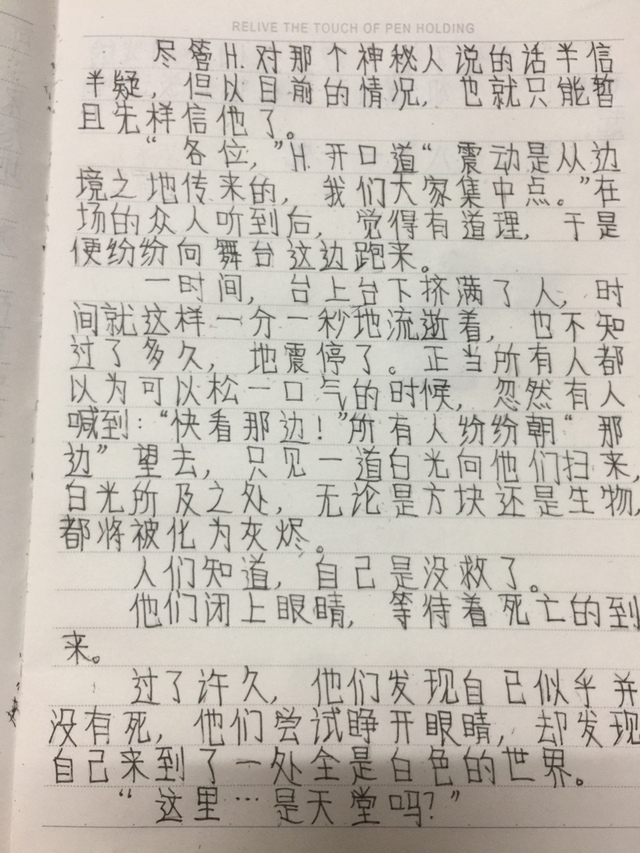 RELIVE THE TOUCH OF PEN HOLDING
尽管H.对那个神秘人说的话半信
半疑，但以目前的情况，也就只能暂
且先样信他了。
“各位，”H.开口道“震动是从边
境之地传来的，我们大家集中点。”在
场的众人听到后，觉得有道理，于是
便纷纷向舞台这边跑来。
一时间，台上台下挤满了人，时
间就这样一分一秒地流逝着，也不知
过了多久，地震停了。正当所有人都
以为可以松一口气的时候，忽然有人
喊到：“快看那边！”所有人纷纷朝“那
边”望去，只见一道白光向他们扫来，
白光所及之处，无论是方块还是生物，
都将被化为灰烬。
人们知道，自己是没救了。
他们闭上眼睛，等待着死亡的到
来。
过了许久，他们发现自己似乎并
没有死，他们尝试睁开眼睛，却发现
自己来到了一处全是白色的世界。
“这里…是天堂吗？”